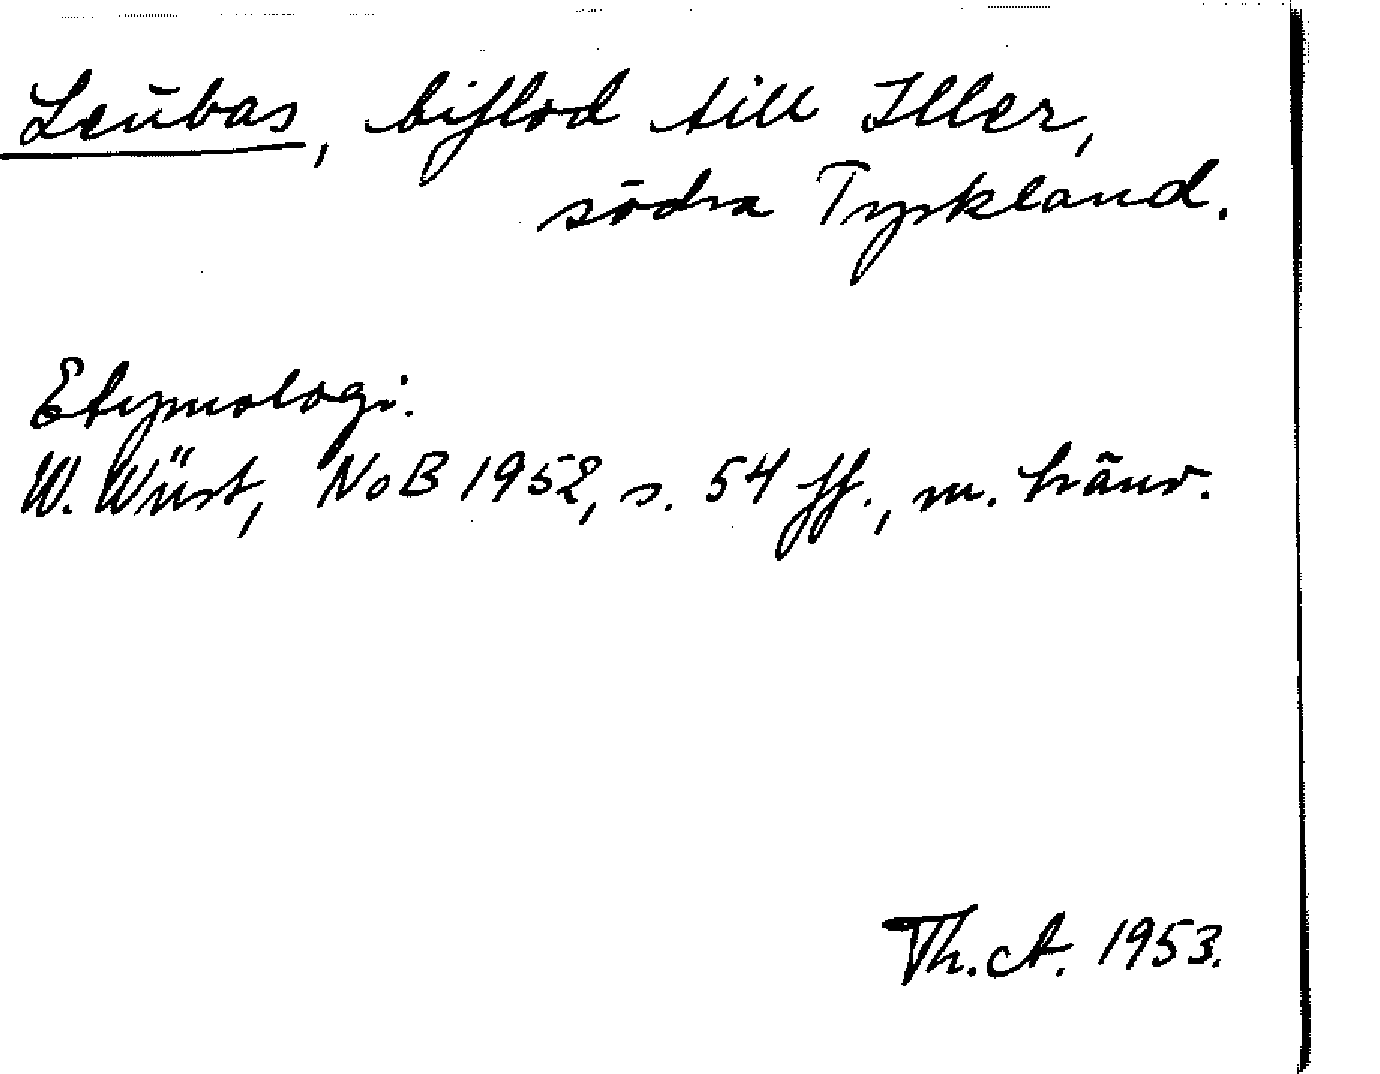 Leubas, biflod till Iller,
södra Tyskland.
Etymologi.
W. Wüst, NoB 1952, s. 54 ff., m. hänv.
Th. A. 1953.